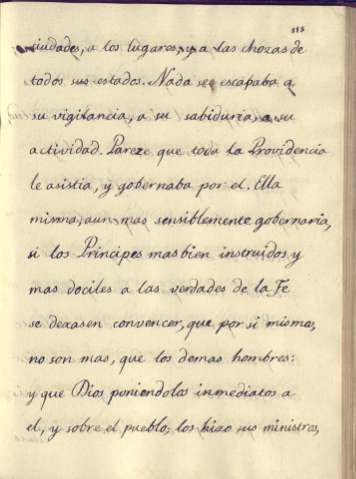 113
ciudades, a los lugares, y a las chozas de
todos sus estados. Nada se escapaba a
su vigilancia, a su sabiduria, a su
actividad. Pareze que toda la Providencia
le asistia, y gobernaba por el. Ella
misma, aun mas sensiblemente gobernaria,
si los Principes mas bien instruidos y
mas dociles a las verdades de la Fe
se dexasen convencer, que por si mismos,
no son mas, que los demas hombres:
y que Dios poniendolos inmediatos a
el, y sobre el pueblo, los hizo sus ministros,